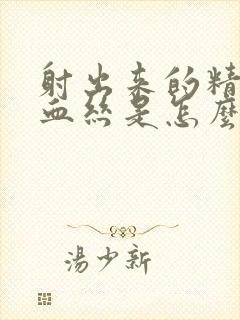 射出来的精
血丝是怎麽
湯少新